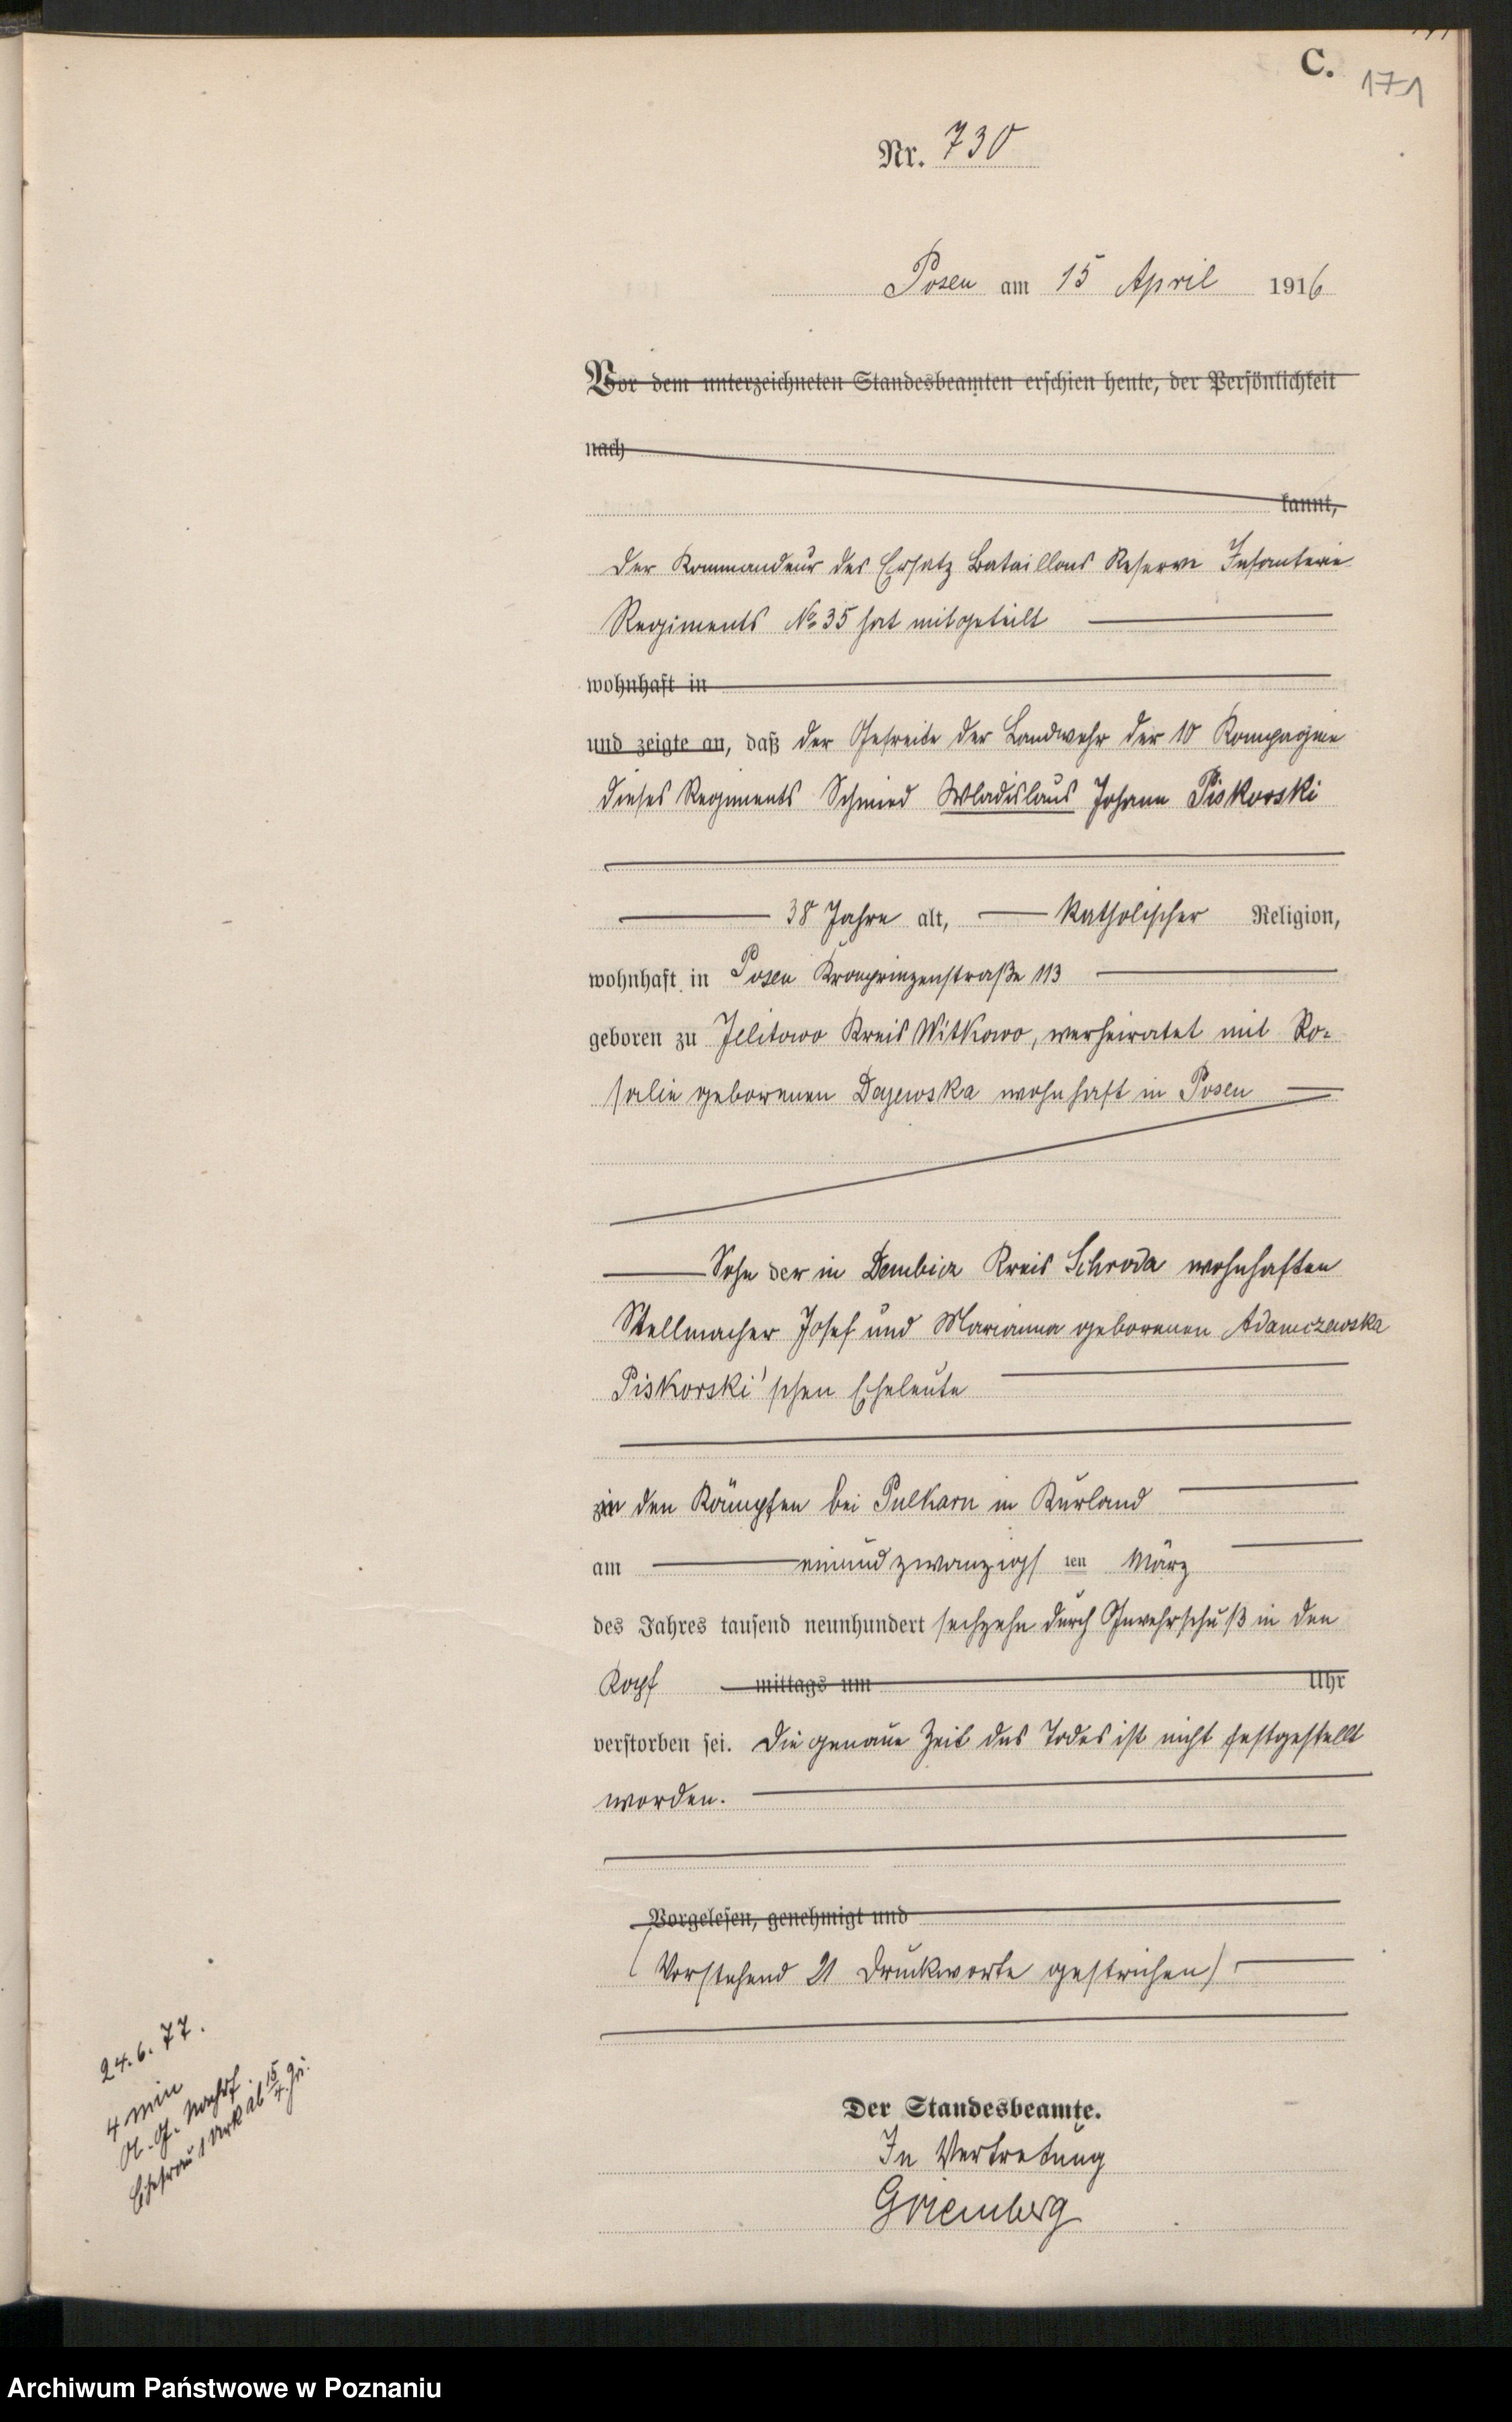 C.
171
Nr. 730
Posen am 15 April 1916
Vor dem unterzeichneten Standesbeamten erschien heute, der Persönlichkeit
nach
kannt,
Der Kommandeur des Ersatz Bataillons Reserve Infanterie
Regiments No 35 hat mitgeteilt
wohnhaft in
und zeigte an, daß der Gefreite der Landwehr der 10 Kompagnie
dieses Regiments Schmied Wladislaus Johann Piskorski
38 Jahre alt, katholischer Religion,
wohnhaft in Posen Kronprinzenstraße 113
geboren zu Jelitowo Kreis Witkowo, verheiratet mit Ro-
salie geborenen Dajewska wohnhaft in Posen
Sohn der in Dembicz Kreis Schroda wohnhaften
Stellmacher Josef und Marianna geborenen Adamczewska
Piskorski'schen Eheleute
in den Kämpfen bei Pulkarn in Kurland
am einundzwanzigs ten März
des Jahres tausend neunhundert sechzehn durch Gewehrschuß in den
Kopf mittags um Uhr
verstorben sei. Die genaue Zeit des Todes ist nicht festgestellt
worden.
Vorgelesen, genehmigt und
(Vorstehend 21 Druckworte gestrichen)
Der Standesbeamte.
In Vertretung
24.6.77.
4 min
Ehefrau 1 Urk ab 15/4.
Archiwum Państwowe w Poznaniu